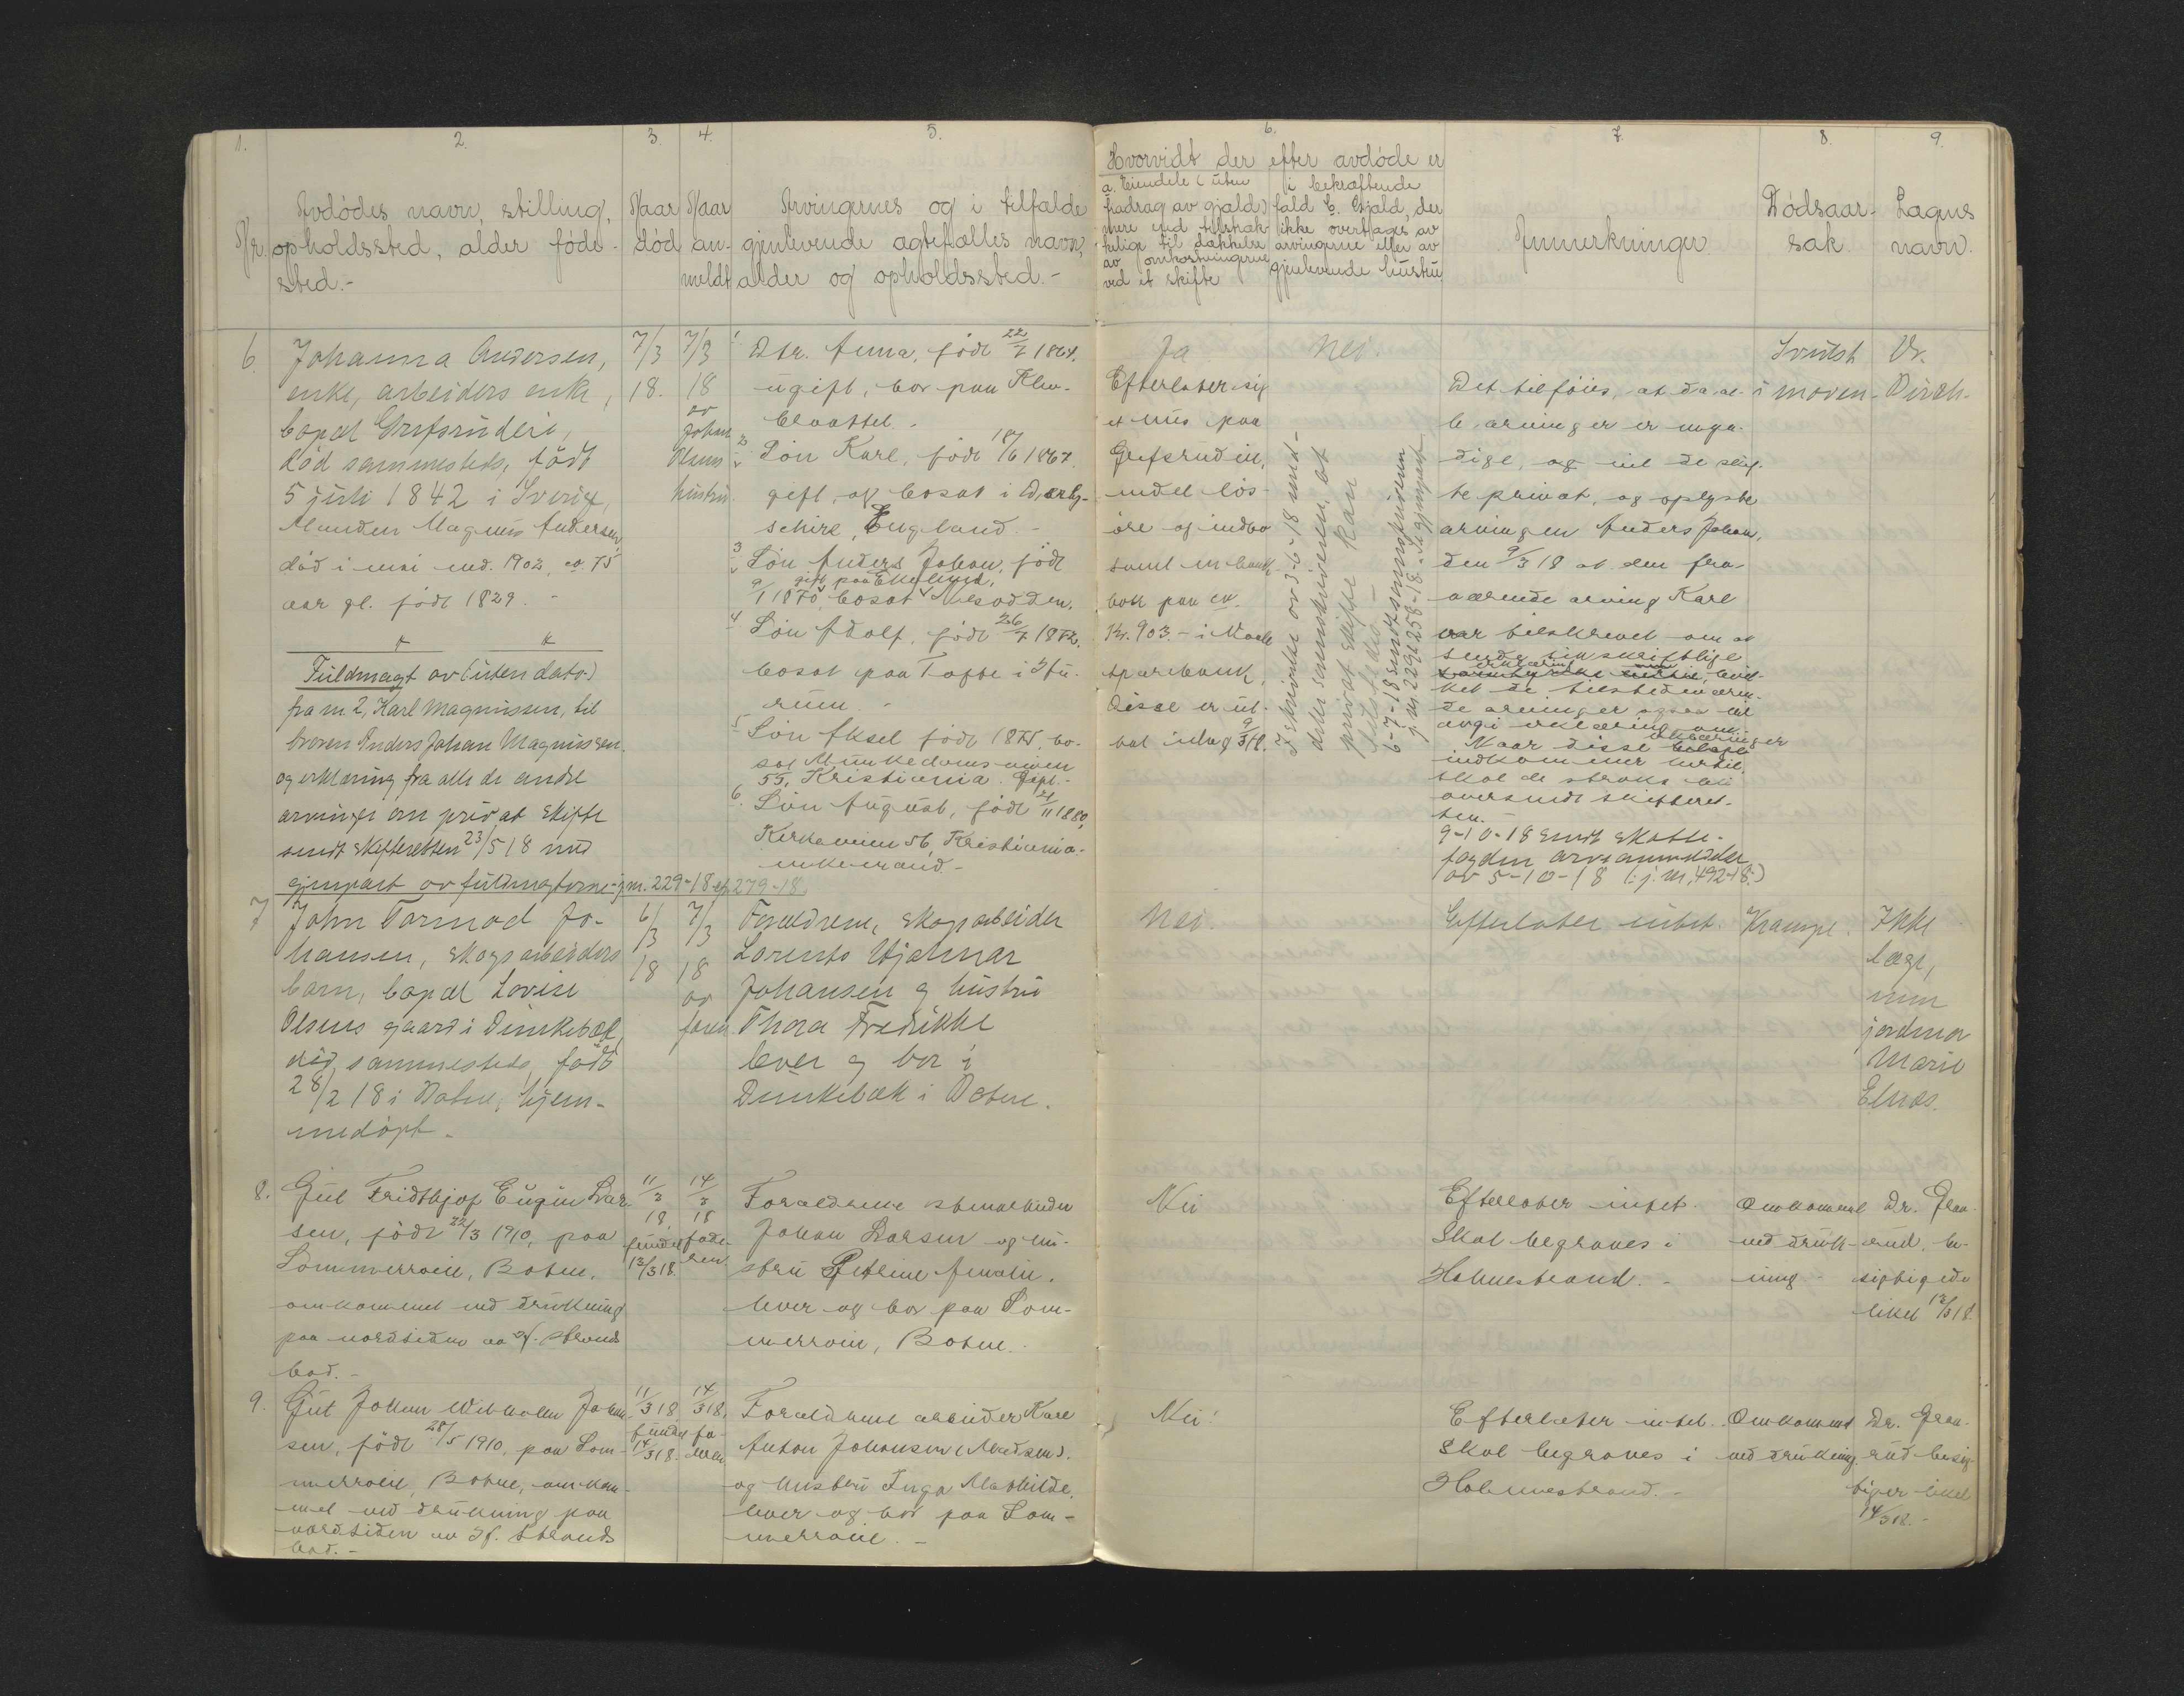 1.
2.
3.
4.
5.
6.
7.
8.
9.
Nr.
Avdødes navn, stilling,
opholdssted, alder føde-
sted.-
Naar
død
Naar
an-
meldt
Arvingernes og i tilfælde
gjenlevende ægtefælles navn,
alder og opholdssted.-
Hvorvidt der efter avdøde er
a. Eiendele (uten
fradrag av gjæld)
mere end tilstræk-
kelige til dækkelse
av omkostningerne
ved et skifte
i bekræftende
fald b. Gjæld, der
ikke overtages av
arvingerne eller av
gjenlevende hustru
Anmerkninger.
Dødsaar-
sak
Lægens
navn.
6.
Johanna Andersen,
enke, arbeiders enke,
bopæl Grefsrudeie,
død sammesteds, født
5 juli 1842 i Sverige,
Manden Magnus Andersen,
død i mai md. 1902, ca 75
aar gl. født 1829. -
Fuldmagt av (uten dato)
fra nr. 2, Karl Magnussen, til
broren Anders Johan Magnussen.
og erklæring fra alle de andre
arvinger om privat skifte
sendt skifteretten 23/5 18 med
gjenpart av fuldmagterne j.nr. 229-18 og 279-18.
7/3
18.
7/3
18
av
Johan
Olsens
hustru.
1 Dtr. Anna, født 22/7 1864.
ugift, bor paa Klev-
2 Søn Karl, født 18/6 1867.
gift, og bosat i Derby-
schire, England. -
3 Søn Anders Johan, født
9/1 1870, gift, paa Ekelund,
bosat Nesodden.
4 Søn Adolf, født 26/7 1872,
bosat paa Tofte i Hu-
rum. -
5 Søn Aksel født 1875, bo-
sat Munkedamsveien
55, Kristiania. Gift.-
6. Søn August, født 21/11 1880,
Kirkeveien 56, Kristiania.
enkemand. -
Ja
Efterlater sig
et hus paa
Grefsrudeie,
endel løs-
øre og indbo
samt en bank-
bok paa ca.
Kr. 903.- i Vaale
sparebank.
Disse er ut-
9/3 18.
Nei.
I skrivelse av 3-6-18 med-
deler sorenskriveren, at
privat skifte kan
6-7-18 sendt sorenskriveren
j.nr. 229 & 258-18. gjenpart
Det tilføies, at da al-
le arvinger er myn-
dige, og vil de skif-
te privat, og oplyste
arvingen Anders Johan,
den 9/3 18 at den fra-
værende arving Karl
var tilskrevet om at
sende sin skriftlige
erklæring, hvil-
ket de tilstedeværen-
de arvinger ogsaa vil
avgi erklæring om.
Naar disse erklæringer
indkommer hertil,
skal de straks bli
oversendt skifteret-
ten. -
9-10-18 sendt skatte-
fogden arveanmeldelse
av 5-10-18 (j.nr. 492-18.)
Svulst
i maven-
Dr.
Dirch-
7
John Tormod Jo-
hansen, skogsarbeiders
barn, bopæl Lovise
Olsens gaard i Dunkebæk,
død sammesteds, født
28/2 18 i Botne, hjem-
medøpt. -
6/3
18
7/3
18
av
faren
Forældrene, skogsarbeider
Lorents Hjalmar
Johansen og hustru
Thora Fredrikke
lever og bor i
Dunkebæk i Botne.
Nei.
Efterlater intet.
Krampe.
Ikke
læge,
men
jordmor
Marie
Elnæs.
8.
Gut Fridthjof Eugen Lar-
sen, født 22/3 1910, paa
Sommerroeie, Botne,
omkommet ved drukning
paa nordsiden av H. strands
bad. -
11/3
18,
fundet
13/3 18.
14/3
18
fade-
ren
Forældrene stenarbeider
Johan Larsen og hu-
stru Petrine Amalie.
lever og bor paa Som-
merroeie, Botne.
Nei
Efterlater intet.
Skal begraves i
Holmestrand. -
Omkommet
ved druk-
ning -
Dr. Gran-
rud, be-
sigtigede
liket 13/3 18.
9.
Gut Johan Wilhelm Johan-
sen, født 28/5 1910, paa Som-
merroeie, Botne, omkom-
met ved drukning paa
nordsiden av H. Strands
bad. -
11/3 18
fundet
14/3 18.
14/3 18,
fa-
deren
Forældrene arbeider Karl
Anton Johansen (Madsen).
og hustru Inga Mathilde,
lever og bor paa Som-
merroeie. -
Nei.
Efterlater intet.
Skal begraves i
Holmestrand. -
Omkommet
ved drukning.
Dr. Gran-
rud besig-
tiger liket
14/3 18. -